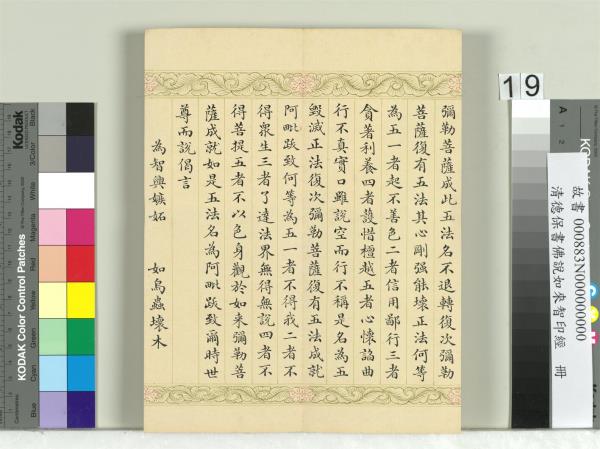 彌勒菩薩成此五法名不退轉復次彌勒
菩薩復有五法其心剛强能壞正法何等
為五一者起不善色二者信用鄙行三者
貪著利養四者護惜檀越五者心懷諂曲
行不真實口雖說空而行不稱是名為五
毀滅正法復次彌勒菩薩復有五法成就
阿毗跋致何等為五一者不得我二者不
得眾生三者了達法界無得無說四者不
得菩提五者不以色身觀於如来彌勒菩
薩成就如是五法名為阿毗跋致爾時世
尊而說偈言
為智興嫉妬 如鳥蟲壞木
19
故書 000883N000000000
清德保書佛說如来智印經 冊
Kodak
KODAK Color Control Patches
Blue
Cyan
Green
Yellow
Red
Magenta
White
3/Color
Black
A 1 2